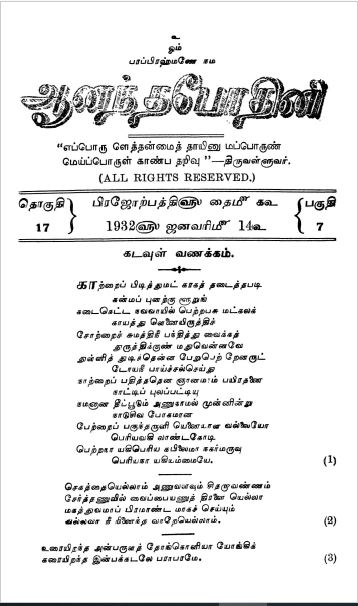 உ
ஓம்
பரப்பிரஹ்மணே நம
ஆனந்தபோதினி
“எப்பொரு ளெத்தன்மைத் தாயினு மப்பொருண்
மெய்ப்பொருள் காண்ப தறிவு”—திருவள்ளுவர்.
(ALL RIGHTS RESERVED.)
தொகுதி 17
பிரஜோற்பத்தி௵ தைமீ கூ
1932௵ ஜனவரி௴ 14உ
பகுதி 7
கடவுள் வணக்கம்.
காற்றைப் பிடித்துமட் கரகத் தடைத்தபடி
கன்மப் புனற்கு ளூறுங்
கடைகெட்ட நவவாயில் பெற்றபசு மட்கலக்
காயத்து ளெனையிருத்திச்
சோற்றைச் சுமத்திநீ பந்தித்து வைக்கத்
துருத்திக்குண் மதுவென்னவே
துள்ளித் துடித்தென்ன பேறுபெற் றேனருட்
டோயநீ பாய்ச்சல்செய்து
நாற்றைப் பதித்ததென ஞானமாம் பயிரதனை
நாட்டிப் புலப்பட்டியு
நமனான தீப்பூடும் அணுகாமல் முன்னின்று
நாடுசிவ போகமான
பேற்றைப் பகுந்தருளி யெனையாள வல்லையோ
பெரியவகி லாண்டகோடி
பெற்றநா யகிபெரிய கபிலைமா நகர்மருவு
பெரியநா யகியம்மையே. (1)
செகத்தையெல்லாம் அணுவளவும் சிதறாவண்ணம்
சேர்த்தணுவில் வைப்பையணுத் திரளை யெல்லா
மகத்துவமாப் பிரமாண்ட மாகச் செய்யும்
வல்லவா நீ நினைந்த வாறேயெல்லாம். (2)
உரையிறந்த அன்பருளத் தோங்கொளியா யோங்கிக்
கரையிறந்த இன்பக்கடலே பராபரமே. (3)